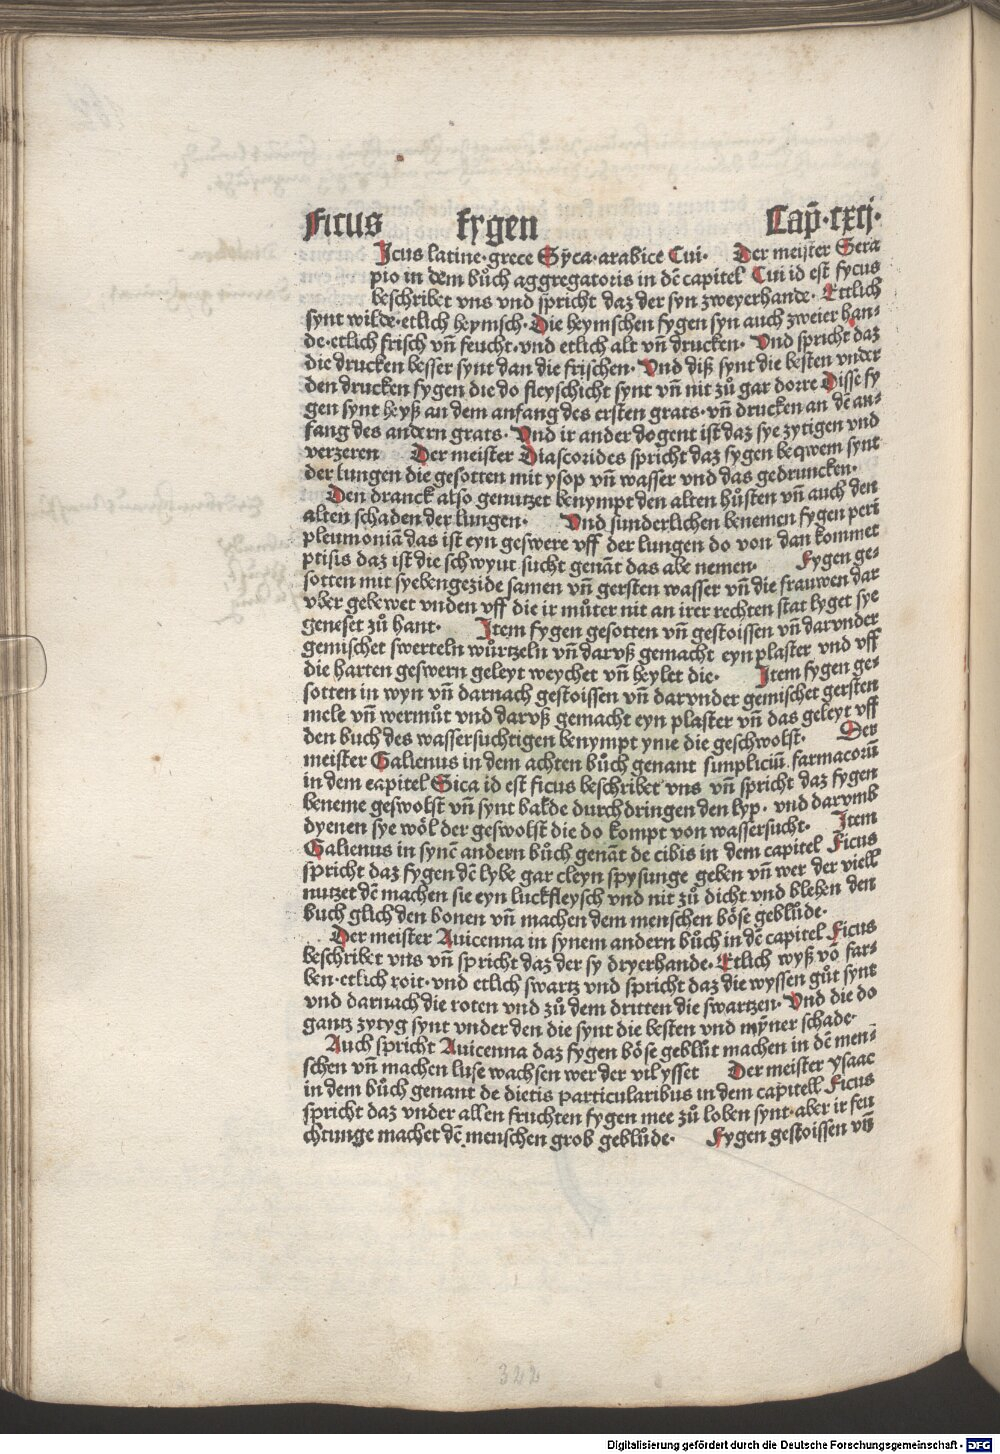 Ficus fygen Cap̄·cxcj·
Jcus latine·grece Sÿca·arabice Cui· Der meister Sera
pio in dem bůch aggregatoris in dē capitel Cui id est fycus
beschribet vns vnd spricht daz der syn zweyerhande· Ettlich
synt wilde·etlich heymsch·Die heymschen fygen syn auch zweier han⸗
de·etlich frisch vn̄ feucht·vnd etlich alt vn̄ drucken· Vnd spricht daz
die drucken besser synt dan die frischen· Vnd diß synt die besten vnder
den drucken fygen die do fleyschicht synt vn̄ nit zů gar dorre Disse fy
gen synt heyß an dem anfang des ersten grats·vn̄ drucken an dē an⸗
fang des andern grats· Vnd ir ander dogent ist daz sye zytigen vnd
verzeren Der meister Diascorides spricht daz fygen beqwem synt
der lungen die gesotten mit ysop vn̄ wasser vnd das gedruncken·
Den dranck also genutzet benympt den alten hůsten vn̄ auch den
alten schaden der lungen· Vnd sunderlichen benemen fygen peri
pleumoniā das ist eyn geswere vff der lungen do von dan kommet
ptisis daz ist die schwynt sucht genāt das abe nemen· Fygen ge⸗
sotten mit syebengezide samen vn̄ gersten wasser vn̄ die frauwen dar
vber gebewet vnden vff die ir můter nit an irer rechten stat lyget sye
geneset zů hant· Jtem fygen gesotten vn̄ gestoissen vn̄ darvnder
gemischet swerteln wůrtzeln vn̄ darvß gemacht eyn plaster vnd vff
die harten geswern geleyt weychet vn̄ heylet die· Jtem fygen ge⸗
sotten in wyn vn̄ darnach gestoissen vn̄ darvnder gemischet gersten
mele vn̄ wermůt vnd darvß gemacht eyn plaster vn̄ das geleyt vff
den buch des wassersuchtigen benympt yme die geschwolst· Der
meister Galienus in dem achten bůch genant simpliciū farmacorū
in dem capitel Sica id est ficus beschribet vns vn̄ spricht daz fygen
beneme geswolst vn̄ synt balde durchdringen den lyp· vnd darvmb
dyenen sye wöl der geswolst die do kompt von wassersucht· Jtem
Galienus in synē andern bůch genāt de cibis in dem capitel Ficus
spricht daz fygen dē lybe gar cleyn spysunge geben vn̄ wer der viell
nutzet dē machen sie eyn luckfleysch vnd nit zů dicht vnd blehen den
buch glich den bonen vn̄ machen dem menschen böse geblůde·
Der meister Auicenna in synem andern bůch in dē capitel Ficus
beschribet vns vn̄ spricht daz der sy dryerhande· Etlich wyß vō far⸗
ben·etlich roit·vnd etlich swartz vnd spricht daz die wyssen gůt synt
vnd darnach die roten vnd zů dem dritten die swartzen· Vnd die do
gantz zytyg synt vnder den die synt die besten vnd mÿner schade·
Auch spricht Auicenna daz fygen böse geblůt machen in dē men⸗
schen vn̄ machen luse wachsen wer der vil ysset Der meister ysaac
in dem bůch genant de dietis particularibus in dem capitell Ficus
spricht daz vnder allen fruchten fygen mee zů loben synt·aber ir feu
chtunge machet dē menschen grob geblůde· Fygen gestoissen vn̄
322
Digitalisierung gefördert durch die Deutsche Forschungsgemeinschaft - DFG